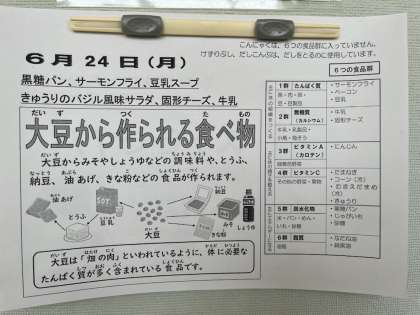 こんにゃくは、6つの食品群に入っていません。
けずりぶし、だしこんぶは、だしをとるのに使用しています。
6月 24日(月)
黒糖パン、サーモンフライ、豆乳スープ
きゅうりのバジル風味サラダ、固形チーズ、牛乳
大豆から作られる食べ物
大豆からみそやしょうゆなどの調味料や、とうふ、
納豆、油あげ、きな粉などの食品が作られます。
油あげ
納豆
とうふ
豆乳
みそ
しょうゆ
大豆
きな粉
大豆は「畑の肉」といわれているように、体に必要な
たんぱく質が多く含まれている食品です。
6つの食品群
1群 たんぱく質
魚・肉・卵・
豆・豆製品
サーモンフライ
ベーコン
豆乳
2群 無機質
(カルシウム)
牛乳・乳製品
小魚・海そう
牛乳
固形チーズ
3群 ビタミンA
(カロテン)
緑黄色野菜
にんじん
4群 ビタミンC
その他の野菜・果物
たまねぎ
コーン(冷)
むきえだまめ
(冷)
きゅうり
5群 炭水化物
米・パン・めん・
いも・砂糖
黒糖パン
じゃがいも
砂糖
6群 脂質
油脂
なたね油
綿実油